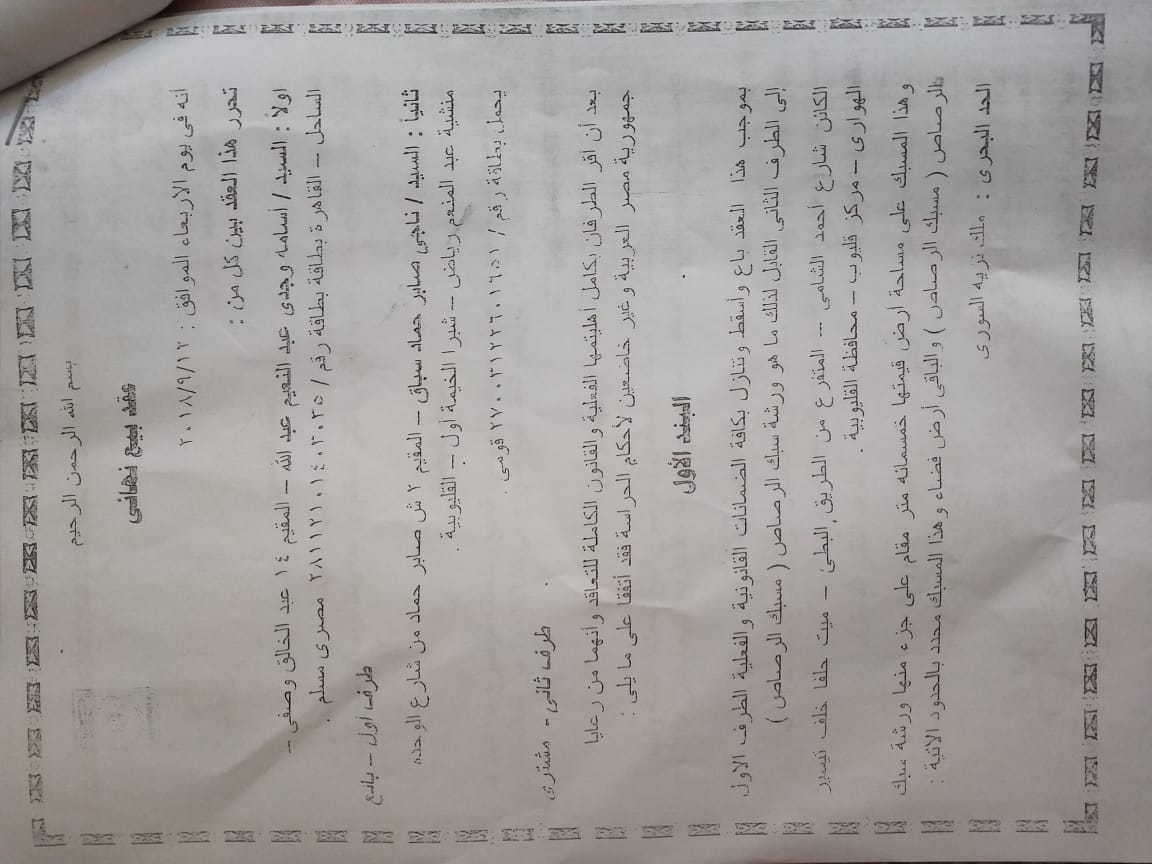 بسم الله الرحمن الرحيم
عقد بيع نهائى
أنه فى يوم الاربعاء الموافق : ٢٠١٨/٩/١٢
تحرر هذا العقد بين كل من :
اولاً : السيد / أسامه وجدى عبد النعيم عبد الله – المقيم ١٤ عبد الخالق وصفى –
الساحل – القاهرة بطاقة بطاقة رقم / ٢٨١١٢١٠١٤٠٢٠٣٥ مصرى مسلم .
طرف أول – بائع
ثانياً : السيد / ناجى صابر حماد سباق – المقيم ٢ ش صابر حماد من شارع الوحده
منشية عبد المنعم رياض – شبرا الخيمة أول – القليوبية .
يحمل بطاقة رقم / ٢٧٠٠٣١٢٢٦٠١٦٥١ قومى .
طرف ثانى – مشترى
بعد أن أقر الطرفان بكامل أهليتهما الفعلية والقانون الكاملة للتعاقد وأنهما من رعايا
جمهورية مصر العربية وغير خاضعين لأحكام الحراسة فقد أتفقا على ما يلى :
البند الأول
بموجب هذا العقد باع وأسقط وتنازل بكافة الضمانات القانونية والفعلية الطرف الاول
إلى الطرف الثانى القابل لذلك ما هو ورشة سبك الرصاص ( مسبك الرصاص )
الكائن شارع أحمد الشامى -- المتفرع من الطريق البطئ – ميت حلفا خلف تيسير
الهوارى – مركز قليوب – محافظة القليوبية .
وهذا المسبك على مساحة ارض قيمتها خمسمائه متر مقام على جزء منها ورشة سبك
الرصاص ( مسبك الرصاص ) والباقى أرض فضاء وهذا المسبك محدد بالحدود الاتية :
الحد البحرى : ملك نزيه السورى